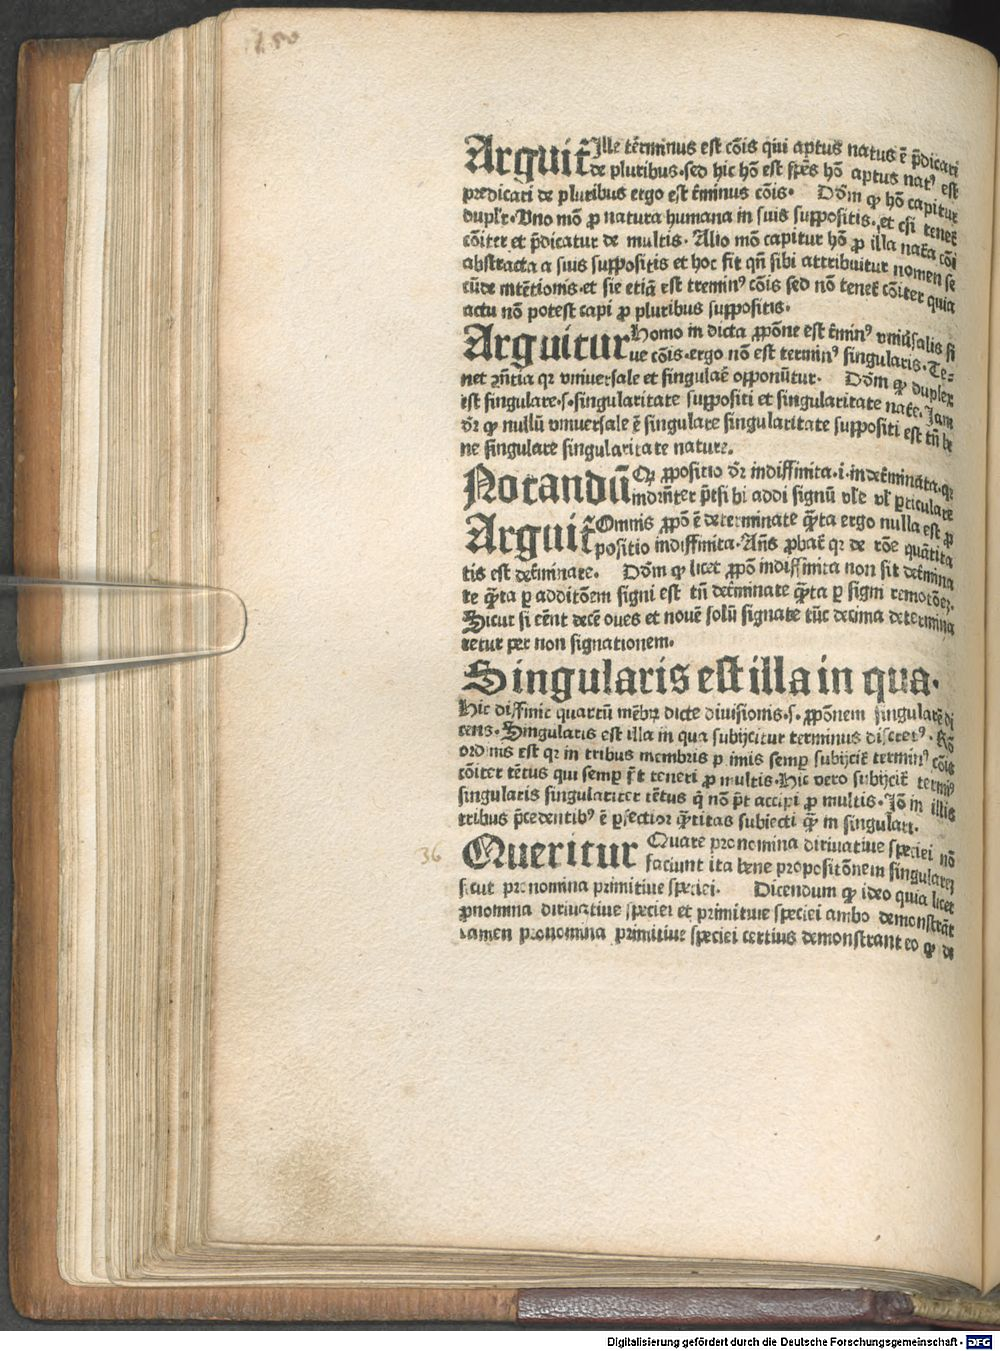 150
Arguit̃ Ille t̃minus est cõis qui aptus natus ē p̃dicari
de pluribus. sed hic hõ est sp̃es hõ aptus natꝰ est
predicari de pluribus ergo est t̃minus cõis. Dõm ꝙ hõ capitur
duplr̃. Uno mõ ꝓ natura humana in suis suppositis. et csi tenet̃
cõiter et p̃dicatur de multis. Alio mõ capitur hõ ꝓ illa nat̃a cõi
abstracta a suis suppositis et hoc fit qñ sibi attribuitur nomen se
cũde intẽtionis. et sie etiã est treminꝰ cõis sed nõ tenet̃ cõiter quia
actu nõ potest capi ꝓ pluribus suppositis.
Arguitur Homo in dicta ꝓpõne est t̃minꝰ vniũsalis si
ue cõis. ergo nõ est terminꝰ singularis. Te⸗
net ꝯñtia qr vniuersale et singulaẽ opponũtur. Dõm ꝙ duplex
est singulare. s. singularitate suppositi et singularitate nat̃e. Jam
dr̃ ꝙ nullũ vniuersale ẽ singulare singularitate suppositi est tñ be
ne singulare singularitate nature.
Notandũ Qꝫ ꝓpositio dr̃ indiffinita. i. indet̃minata. qr
indr̃nter p̃tsi bi addi signũ vl̃e vl̃ ꝑticulare
Arguit̃ Omnis ꝓpõ ẽ determinate q̃ta ergo nulla est ꝓ
positio indiffinita. Añs ꝓbat̃ qr de rõe quãtita
tis est det̃minate. Dõm ꝙ licet ꝓpõ indiffinita non sit det̃mina
te q̃ta ꝑ additõem signi est tñ det̃minate q̃ta ꝑ signi remotõeꝫ.
Sicut si eẽnt decẽ oues et nouẽ solũ signate tũc decima determina
retur per non signationem.
Singularis est illa in qua.
Hic diffinit quartũ mẽbꝝ dicte diuisionis. s. ꝓpõnem singularẽ di
cens. Singularis est illa in qua subijcitur terminus discretꝰ. Rõ
ordinis est qr in tribus membris p imis semꝑ subijcit̃ terminꝰ cõis
cõiter tẽtus qui semꝑ p̃t teneri ꝓ multis. Hic vero subijcit̃ termiꝰ
singularis singulariter tẽtus q̃ nõ p̃t accipi ꝓ multis. Jõ in illis
tribus p̃cedentibꝰ ẽ ꝑfectior q̃titas subiecti q̃ in singulari.
36 Queritur Quare pronomina diriuatiue speciei nõ
faciunt ita bene propositõnem singulareꝫ
sicut pronomina primitiue speciei. Dicendum ꝙ ideo quia licet
ꝓnomina diriuatiue speciei et primitiue speciei ambo demonstrãt
tamen pronomina primitiue speciei certius demonstrant eo ꝙ de
Digitalisierung gefördert durch die Deutsche Forschungsgemeinschaft - DFG